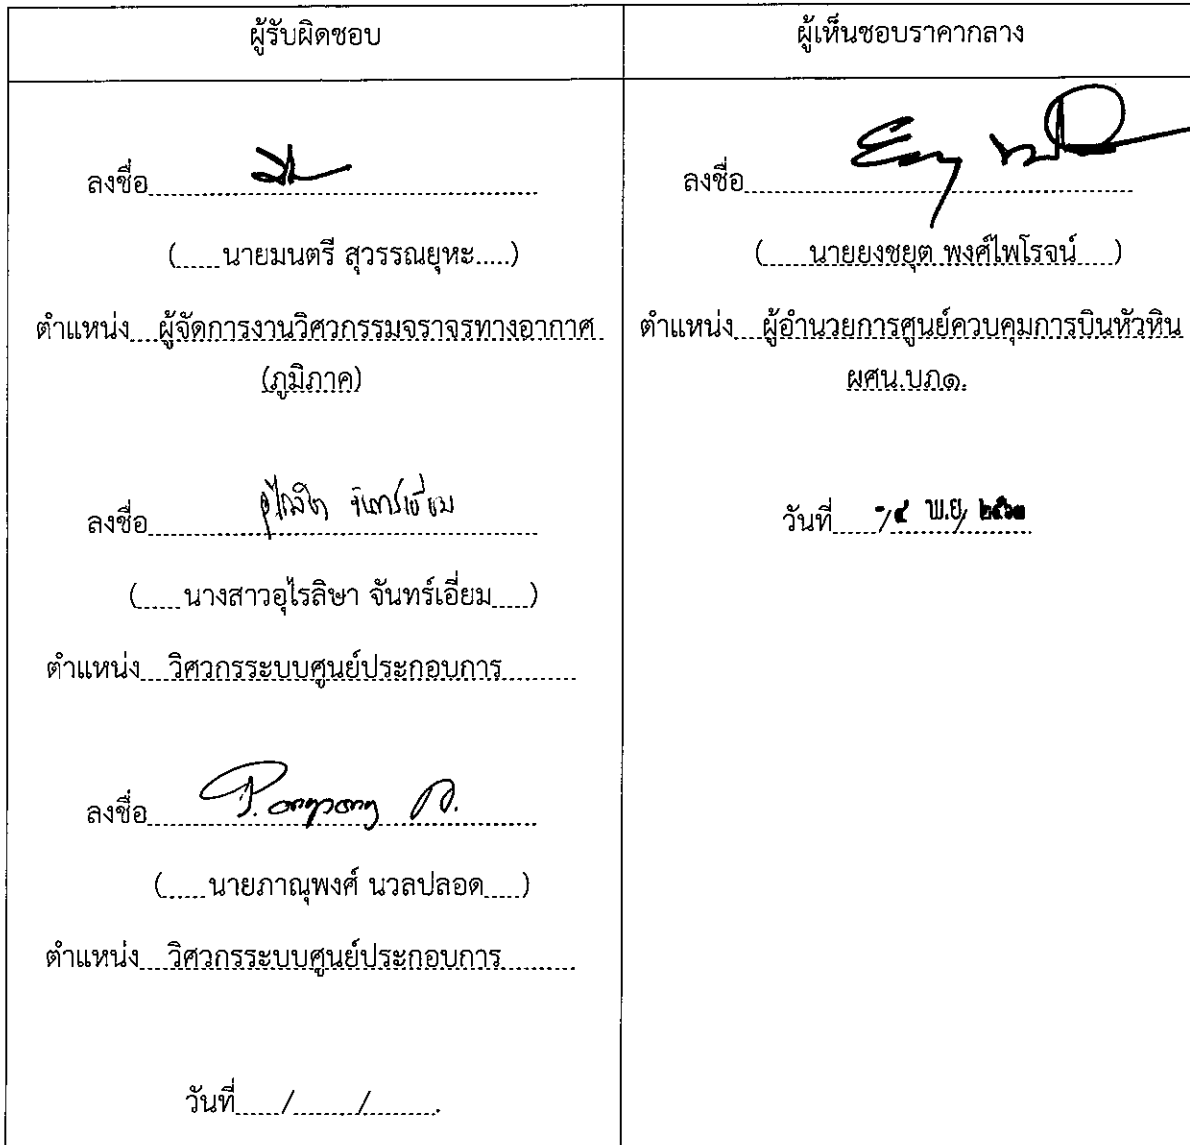 ผู้รับผิดชอบ
ลงชื่อ
(.....นายมนตรี สุวรรณยุหะ.....)
ตำแหน่ง....ผู้จัดการงานวิศวกรรมจราจรทางอากาศ
(ภูมิภาค)
ลงชื่อ อุไรลิษา จันทร์เอี่ยม
(.....นางสาวอุไรลิษา จันทร์เอี่ยม.....)
ตำแหน่ง....วิศวกรระบบศูนย์ประกอบการ.........
ลงชื่อ
(.....นายภาณุพงศ์ นวลปลอด.....)
ตำแหน่ง....วิศวกรระบบศูนย์ประกอบการ.........
วันที่...../........./.........
ผู้เห็นชอบราคากลาง
ลงชื่อ
(.....นายยงชยุต พงศ์ไพโรจน์.....)
ตำแหน่ง....ผู้อำนวยการศูนย์ควบคุมการบินหัวหิน
ผศน.บภ๑.
วันที่ -๔ พ.ย. ๒๕๖๓